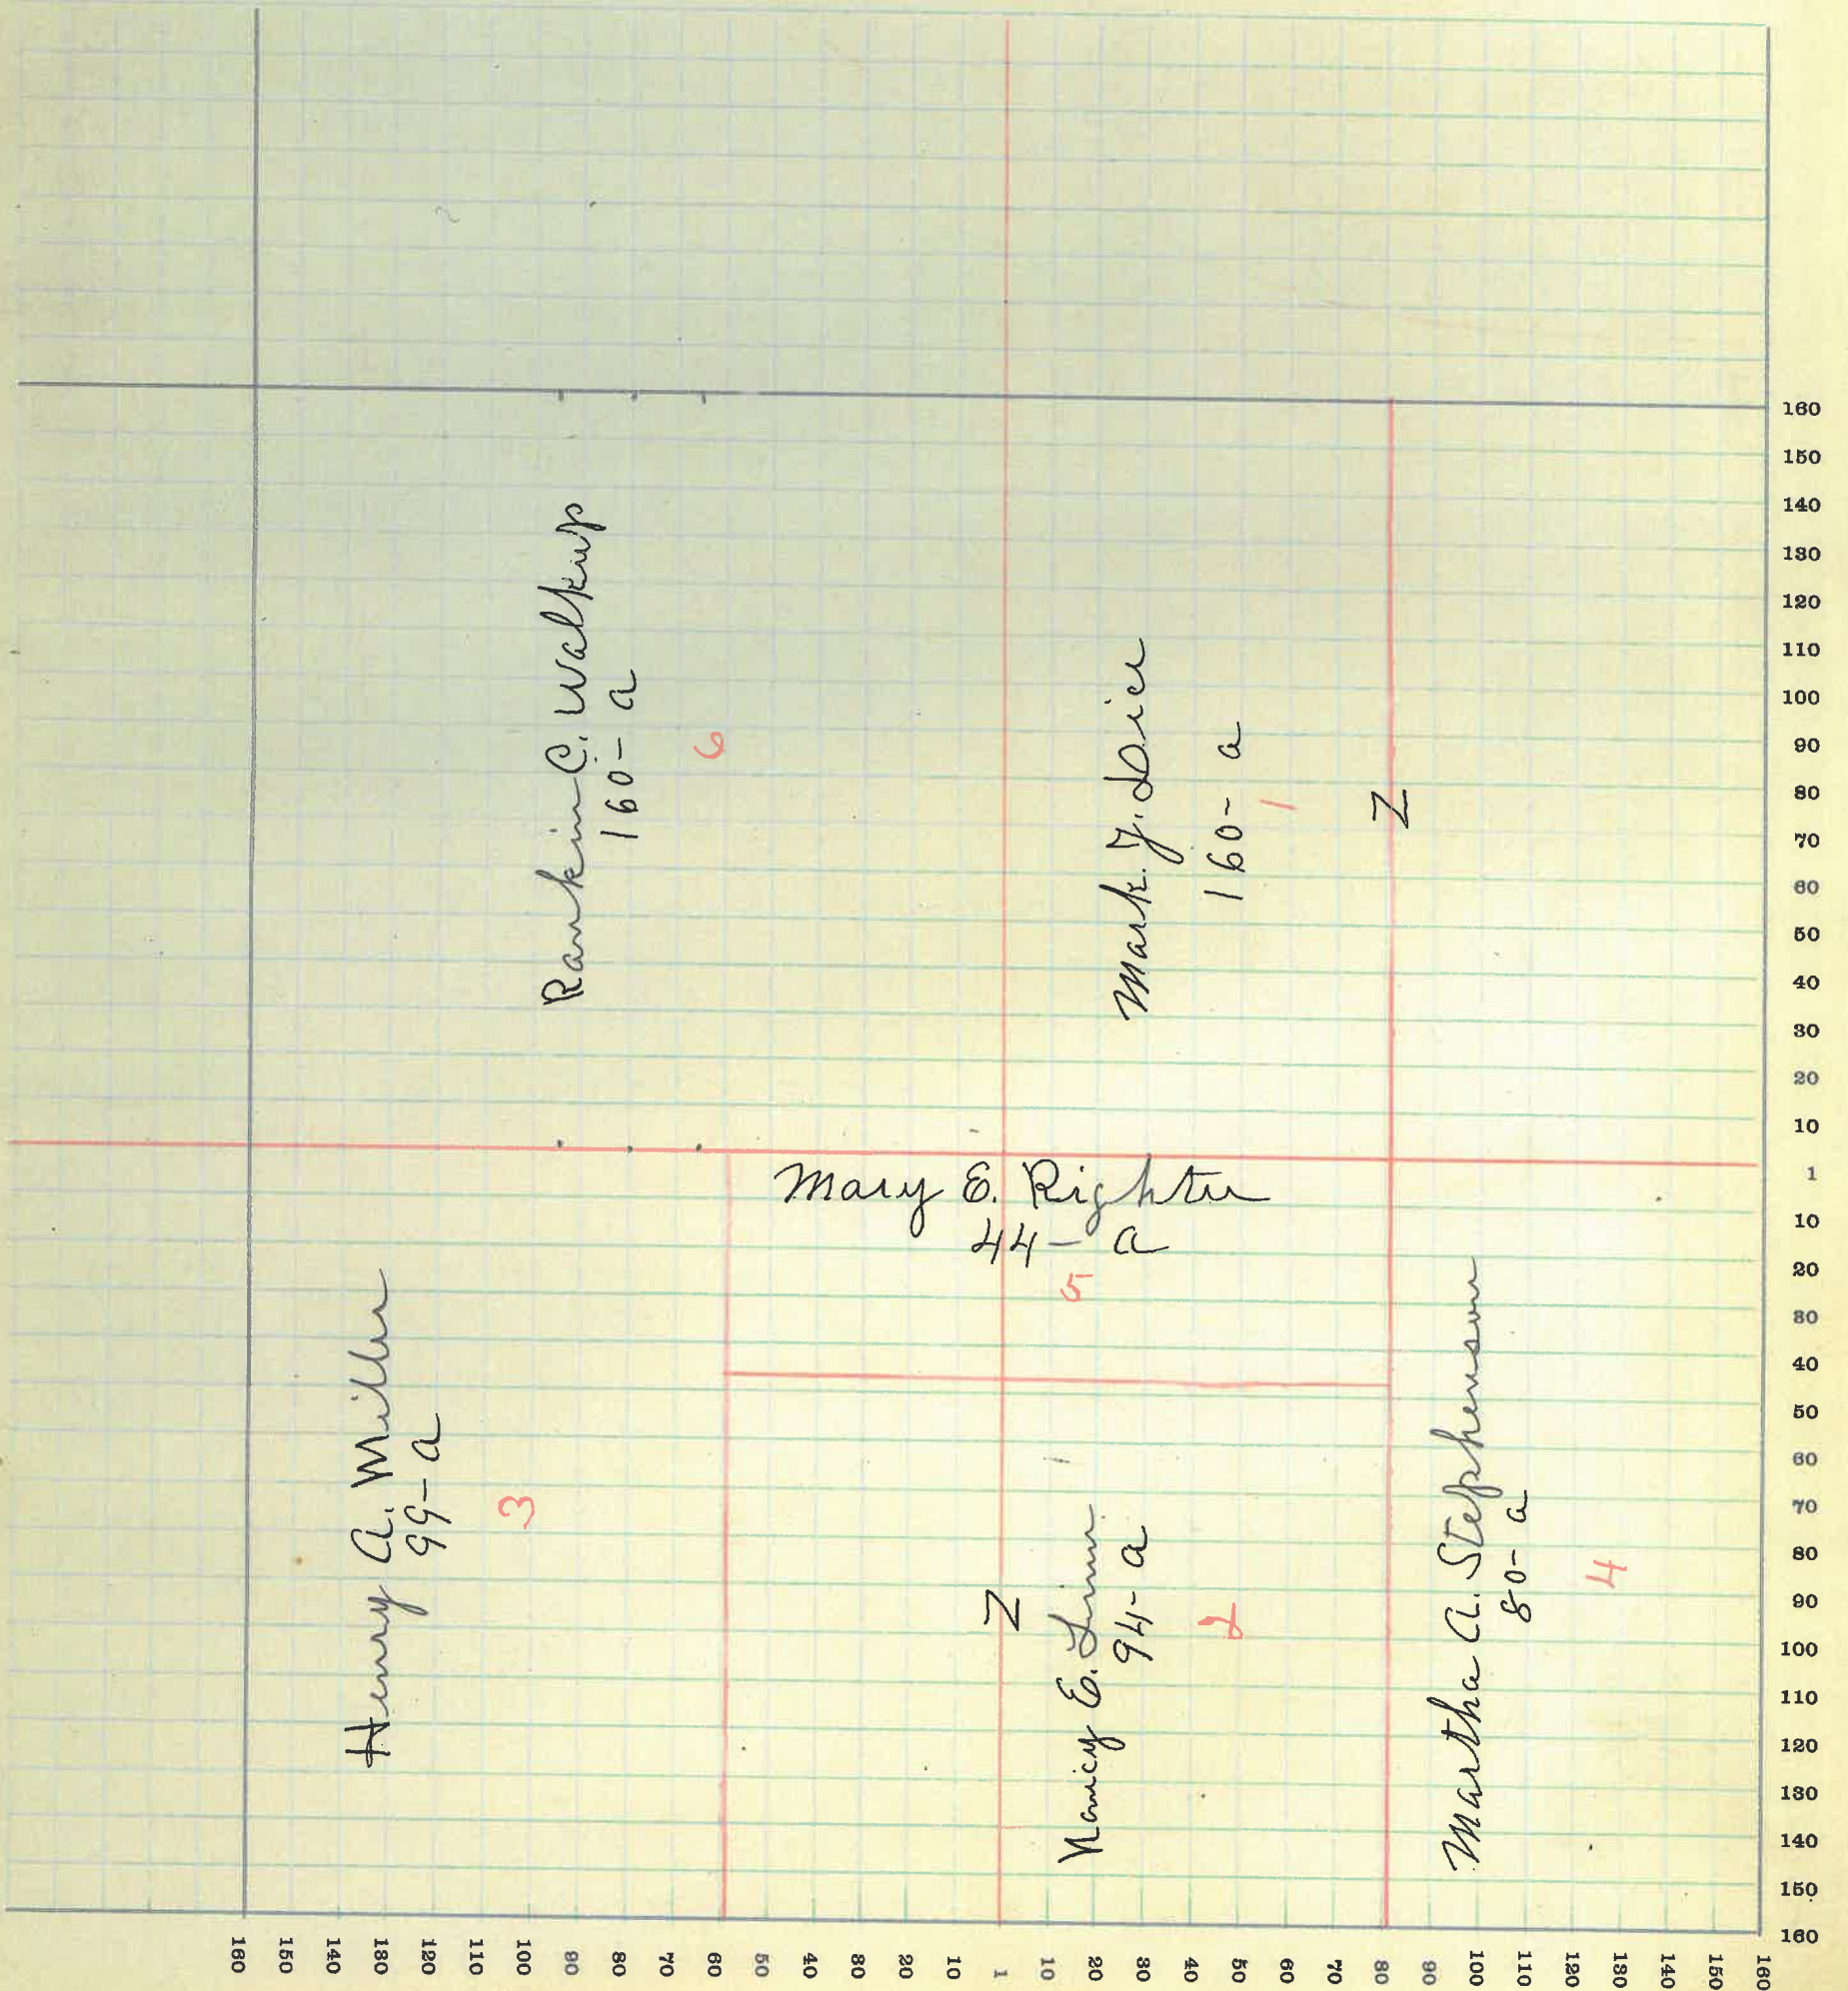 Rankin C. Walkup
160- a
6
Mark. J. Dice
160- a
1
Z
Mary E. Righter
44- a
5
Henry A. Miller
99- a
3
Z
Nancy E. Linn
94- a
2
Martha A. Stephenson
80- a
4
160
150
140
130
120
110
100
90
80
70
60
50
40
30
20
10
1
10
20
30
40
50
60
70
80
90
100
110
120
130
140
150
160
160
150
140
130
120
110
100
90
80
70
60
50
40
30
20
10
1
10
20
30
40
50
60
70
80
90
100
110
120
130
140
150
160